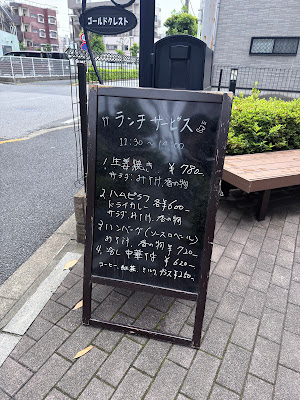 ゴールドクレスト
ランチサービス
11:30〜14:00
1. 生姜焼き ¥780
サラダ、みそ汁、香の物
2. ハムピラフ
ドライカレー 各¥600
サラダ、みそ汁、香の物
3. ハンバーグ(ソースorペール)
みそ汁、香の物 ¥720
4. 冷し中華そば ¥620
コーヒー、紅茶、ミルク プラス¥250